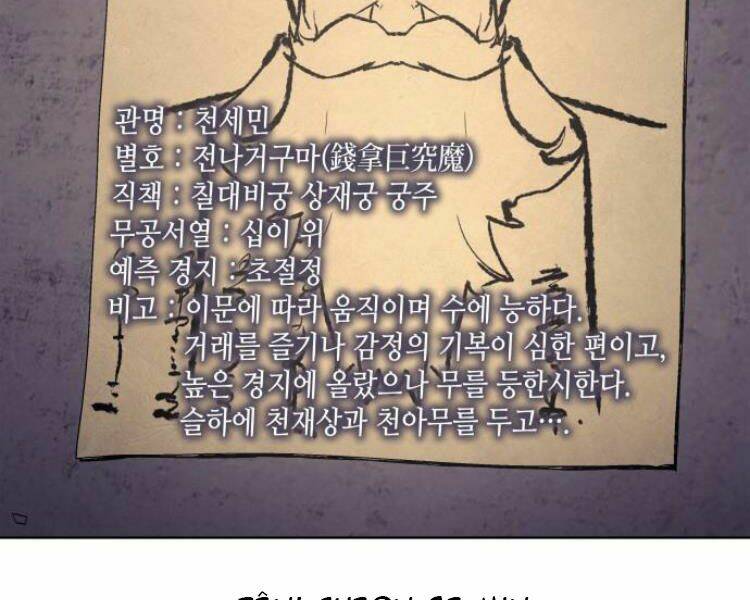 관명 : 천세민
별호 : 전나거구마(錢拿巨究魔)
직책 : 칠대비궁 상재궁 궁주
무공서열 : 십이 위
예측 경지 : 초절정
비고 : 이문에 따라 움직이며 수에 능하다.
거래를 즐기나 감정의 기복이 심한 편이고,
높은 경지에 올랐으나 무를 등한시한다.
슬하에 천재상과 천아무를 두고···.